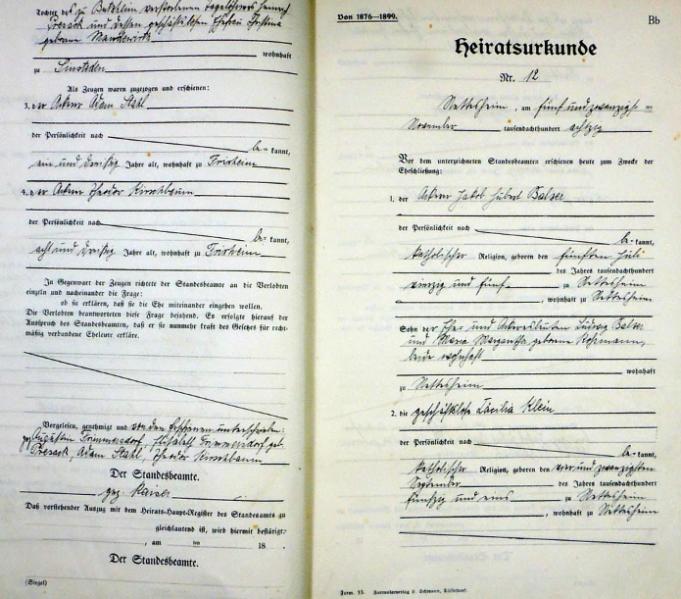 Tochter des zu Butzheim verstorbenen Tagelöhners Heinrich
und dessen geschäftslosen Ehefrau Christina
geborene
wohnhaft
zu
Als Zeugen waren zugezogen und erschienen:
3. der Ackerer Adam Stahl
der Persönlichkeit nach
be- kannt,
ein und dreißig Jahre alt, wohnhaft zu Frixheim
4. der Ackerer Theodor Kirschbaum
der Persönlichkeit nach
be- kannt,
acht und dreißig Jahre alt, wohnhaft zu Frixheim
In Gegenwart der Zeugen richtete der Standesbeamte an die Verlobten
einzeln und nacheinander die Frage:
ob sie erklären, daß sie die Ehe miteinander eingehen wollen.
Die Verlobten beantworteten diese Frage bejahend. Es erfolgte hierauf der
Ausspruch des Standesbeamten, daß er sie nunmehr kraft des Gesetzes für recht-
mäßig verbundene Eheleute erkläre.
Vorgelesen, genehmigt und von den Erschienenen unterschrieben:
Trimmendorf, Elisabeth Trimmendorf geb.
Adam Stahl, Theodor Kirschbaum
Der Standesbeamte.
gez. Kaiser
Daß vorstehender Auszug mit dem Heirats-Haupt-Register des Standesamts zu
gleichlautend ist, wird hiermit bestätigt.
, am ten 18
Der Standesbeamte.
(Siegel)
Von 1876—1899.
Bb
Heiratsurkunde
Nr. 12
Nettesheim, am fünf und zwanzigsten
November tausendachthundert achtzig
Vor dem unterzeichneten Standesbeamten erschienen heute zum Zwecke der
Eheschließung:
1. der Ackerer Jakob Hubert Balser
der Persönlichkeit nach
be- kannt,
katholischer Religion, geboren den fünften Juli
des Jahres tausendachthundert
vierzig und fünf zu Nettesheim
, wohnhaft zu Nettesheim
Sohn der Ehe- und Ackersleuten Ludwig Balser
und Maria Margaretha geborene
beide wohnhaft
wohnhaft
zu Nettesheim
2. die geschäftslose Cäcilia Klein
der Persönlichkeit nach
be- kannt,
katholischer Religion, geboren den vier und zwanzigsten
September des Jahres tausendachthundert
fünfzig und eins zu Nettesheim
, wohnhaft zu Nettesheim
Form. 55. Formularverlag